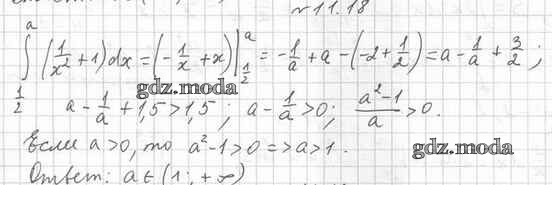 № 11.18
∫ₐ½ (1/x² + 1) dx = (-1/x + x) |ᵃ½ = -1/a + a - (-2 + 1/2) = a - 1/a + 3/2 ;
gdz.moda
a - 1/a + 1,5 > 1,5 ; a - 1/a > 0 ; (a² - 1)/a > 0.
Если a > 0, то a² - 1 > 0 => a > 1.
gdz.moda
Ответ: a ∈ (1 ; +∞)